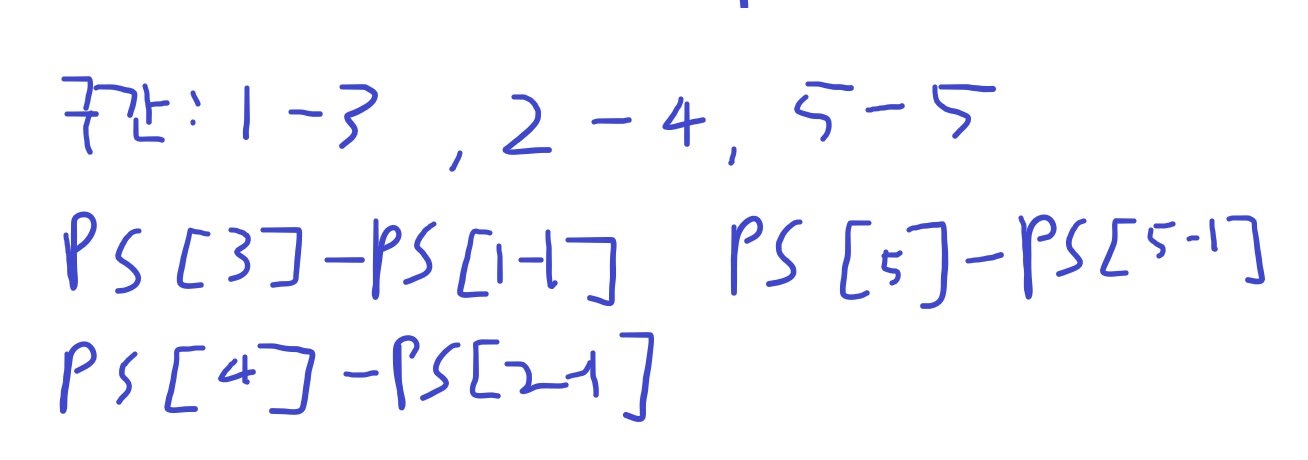 구간: 1-3, 2-4, 5-5
PS[3]-PS[1-1] PS[5]-PS[5-1]
PS[4]-PS[2-1]